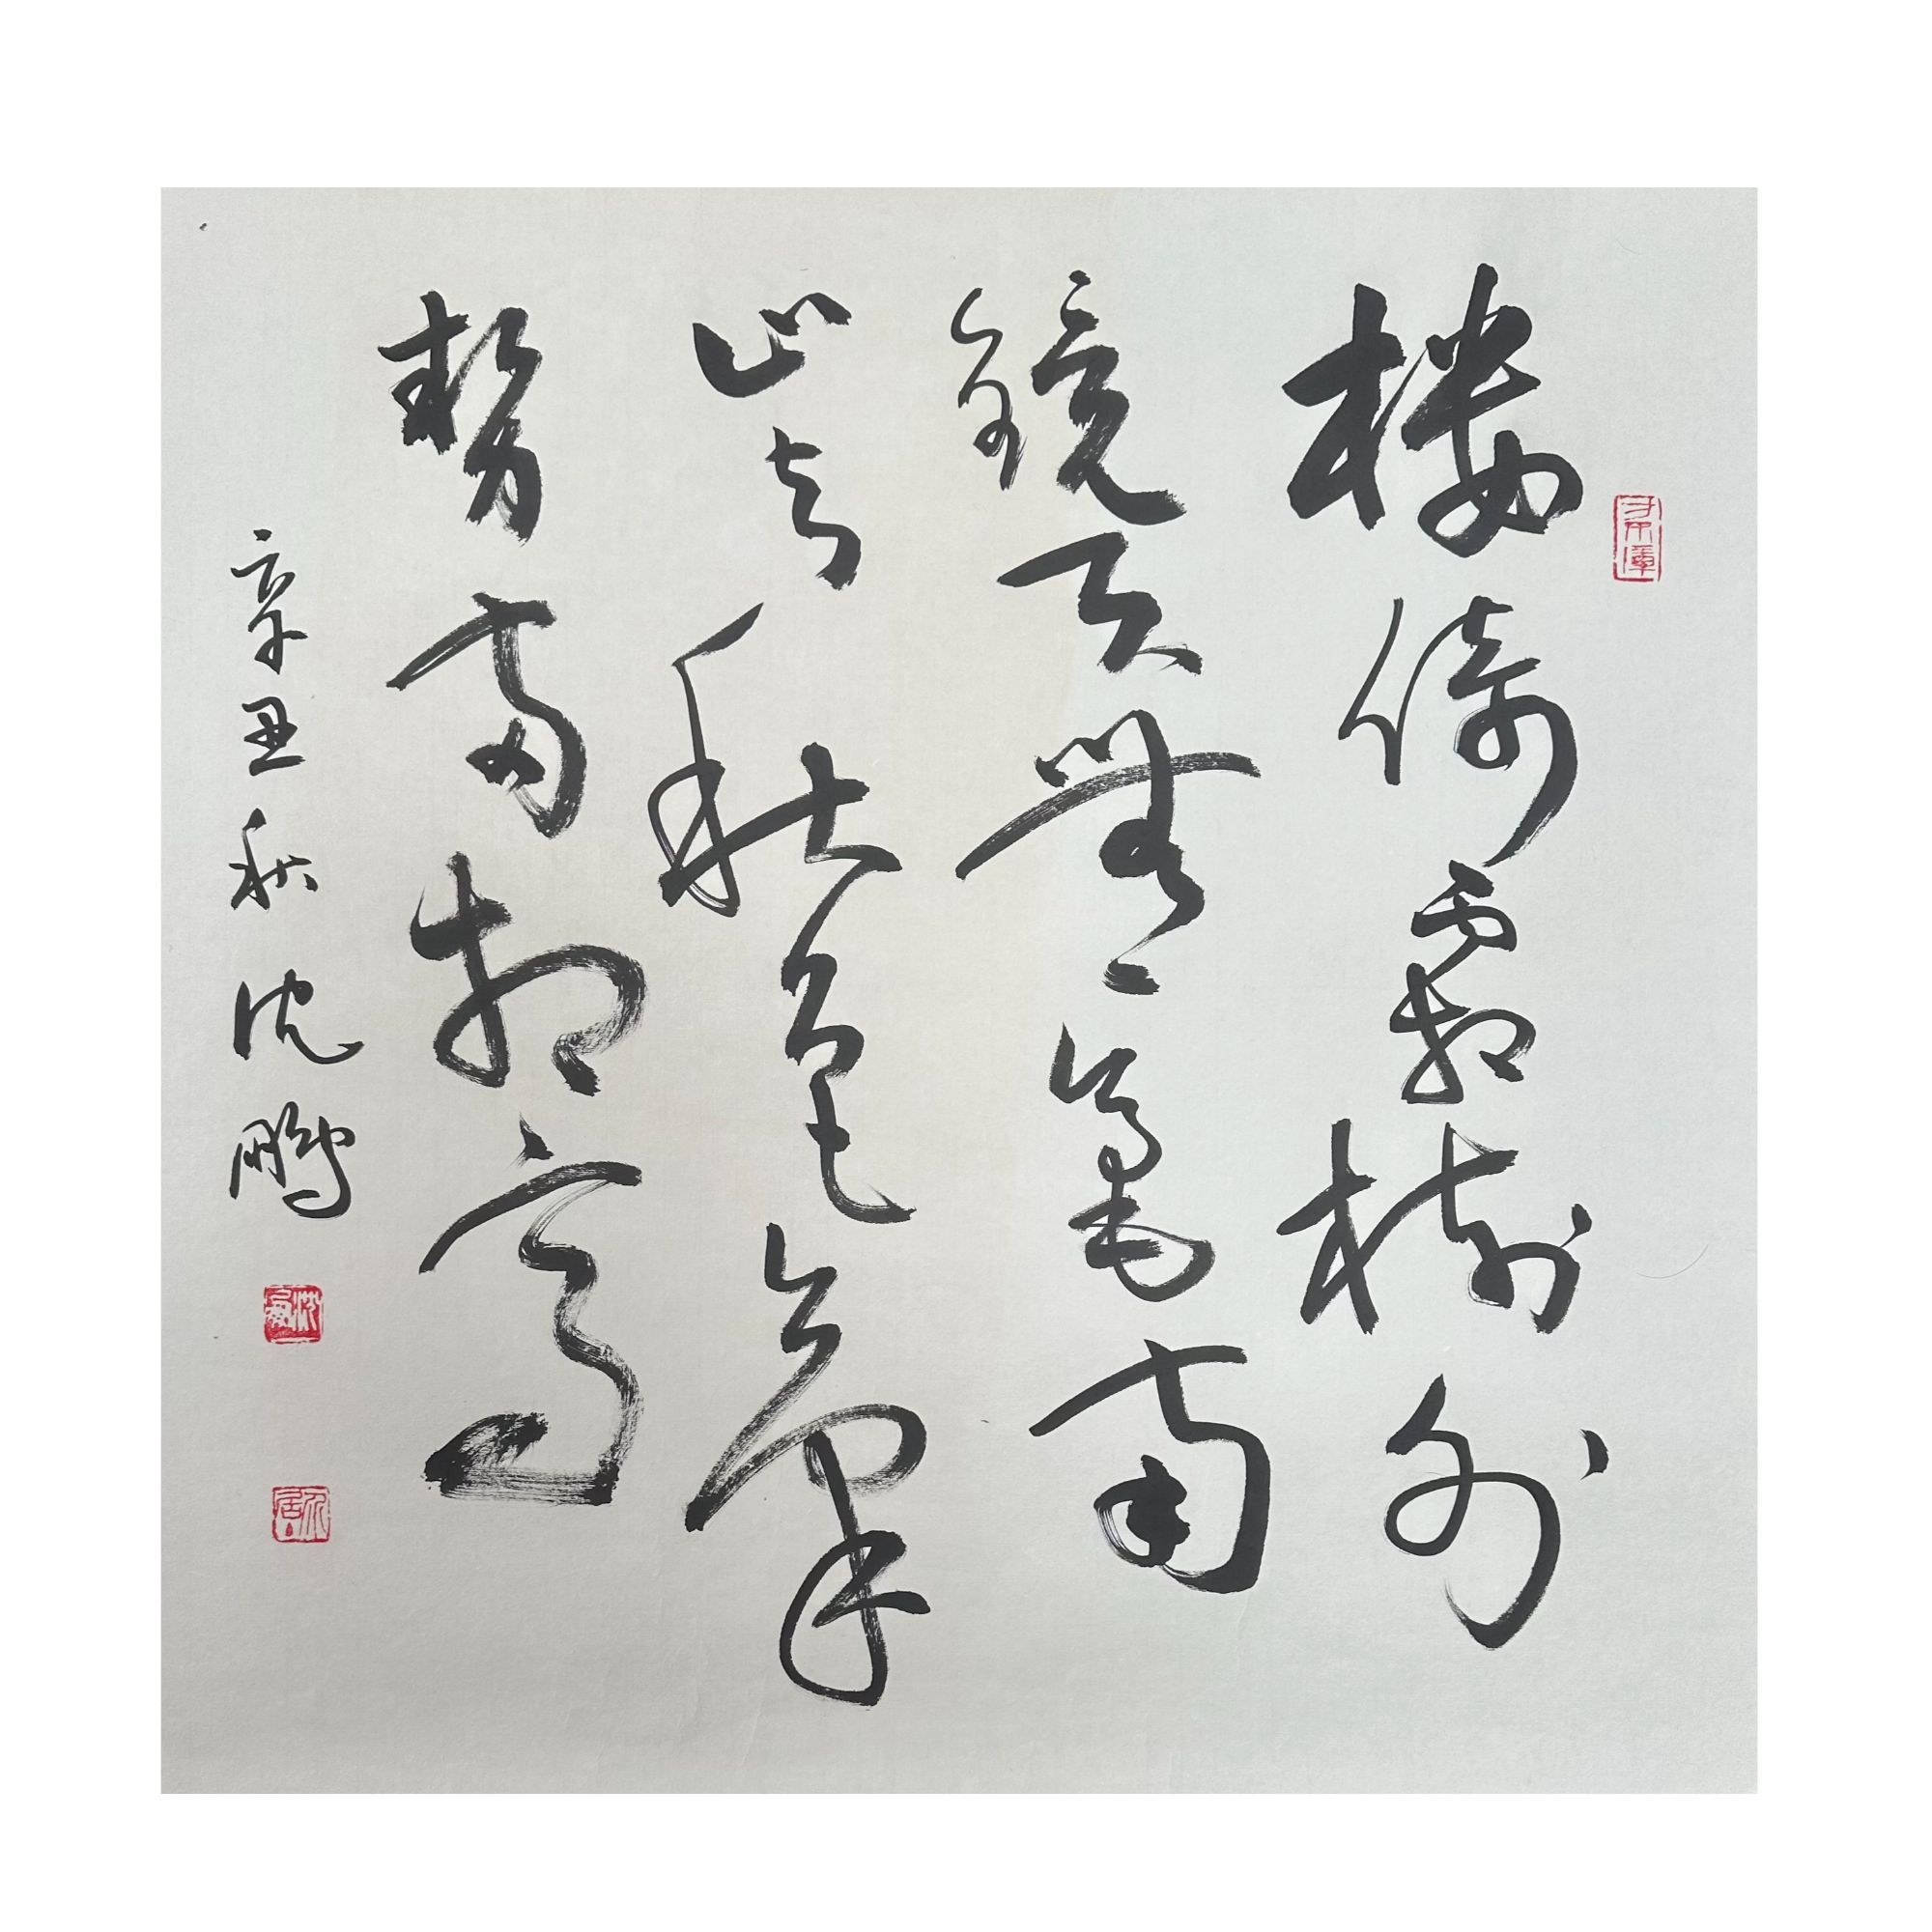 楼倚霜树外
镜天无一毫南
山与秋色气
势两相高
辛丑秋沈鹏